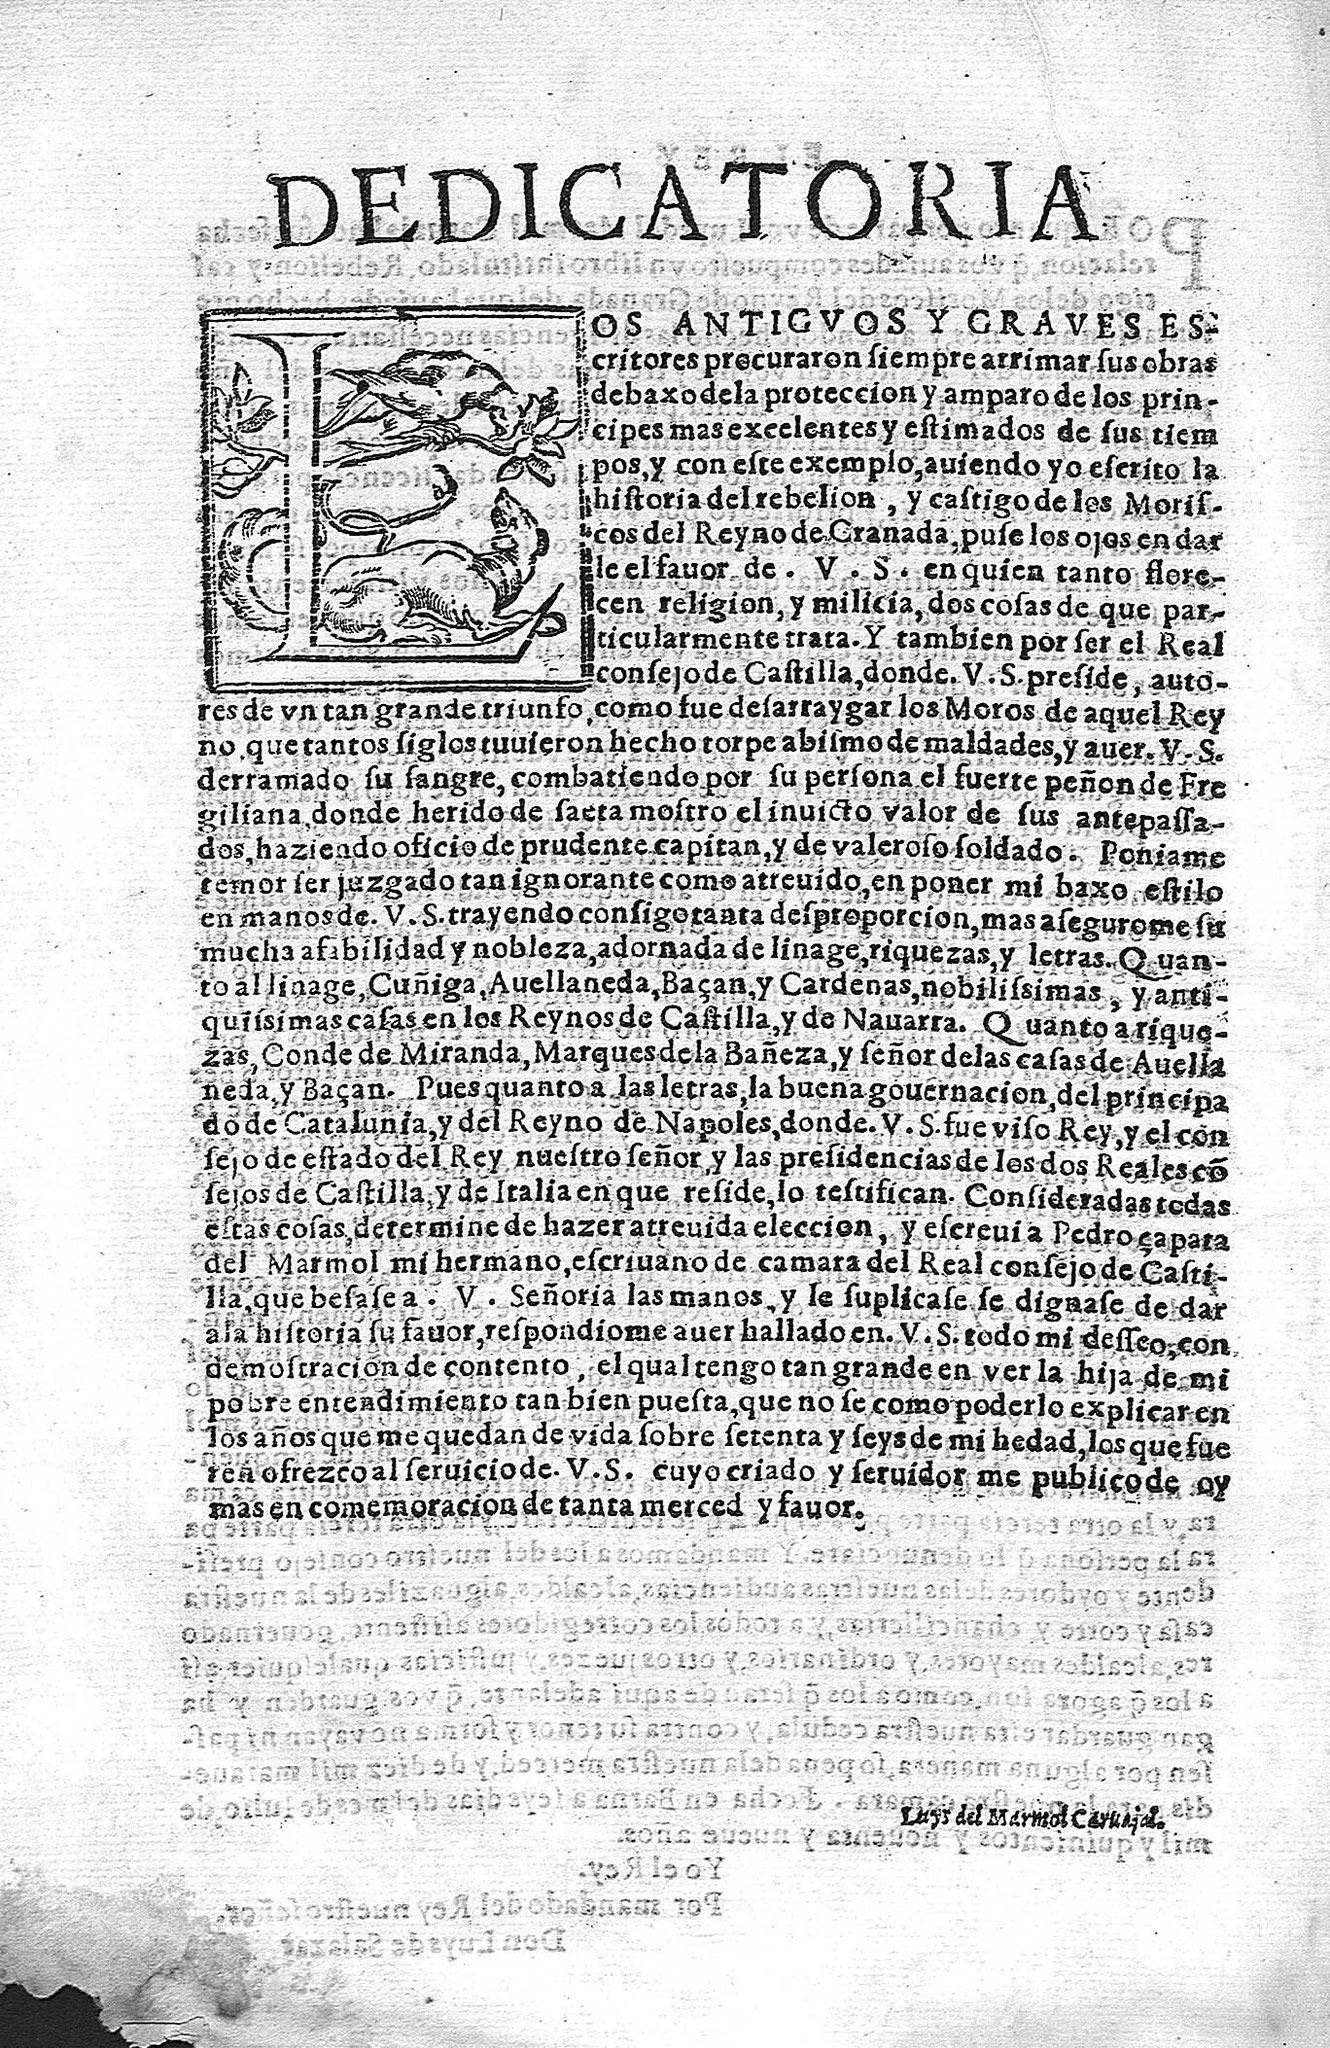 DEDICATORIA
LOS ANTIGVOS Y GRAVES ES-
critores procuraron siempre arrimar sus obras
debaxo de la proteccion y amparo de los prin-
cipes mas excelentes y estimados de sus tiem
pos, y con este exemplo, auiendo yo escrito la
historia del rebelion, y castigo de los Moris-
cos del Reyno de Granada, puse los ojos en dar
le el fauor de . V . S . en quien tanto flore-
cen religion, y milicia, dos cosas de que par-
ticularmente trata. Y tambien por ser el Real
consejo de Castilla, donde. V. S. preside, auto-
res de vn tan grande triunfo, como fue desarraygar los Moros de aquel Rey
no, que tantos siglos tuuieron hecho torpe abismo de maldades, y auer. V. S.
derramado su sangre, combatiendo por su persona el fuerte peñon de Fre
giliana, donde herido de saeta mostro el inuicto valor de sus antepassa-
dos, haziendo oficio de prudente capitan, y de valeroso soldado. Poniame
temor ser juzgado tan ignorante como atreuido, en poner mi baxo estilo
en manos de. V. S. trayendo consigo tanta desproporcion, mas asegurome su
mucha afabilidad y nobleza, adornada de linage, riquezas, y letras. Quan-
to al linage, Cuñiga, Auellaneda, Baçan, y Cardenas, nobilissimas, y anti-
quissimas casas en los Reynos de Castilla, y de Nauarra. Quanto a rique-
zas, Conde de Miranda, Marques de la Bañeza, y señor de las casas de Auella
neda, y Baçan. Pues quanto a las letras, la buena gouernacion, del principa
do de Catalunia, y del Reyno de Napoles, donde. V. S. fue viso Rey, y el con
sejo de estado del Rey nuestro señor, y las presidencias de los dos Reales cõ
sejos de Castilla, y de Italia en que reside, lo testifican. Consideradas todas
estas cosas, determine de hazer atreuida eleccion, y escreui a Pedro çapata
del Marmol mi hermano, escriuano de camara del Real consejo de Casti-
lla, que besase a . V . Señoria las manos, y le suplicase se dignase de dar
a la historia su fauor, respondiome auer hallado en. V. S. todo mi desseo, con
demostracion de contento, el qual tengo tan grande en ver la hija de mi
pobre entendimiento tan bien puesta, que no se como poderlo explicar en
los años que me quedan de vida sobre setenta y seys de mi hedad, los que fue
ren ofrezco al seruicio de. V. S. cuyo criado y seruidor me publico de oy
mas en comemoracion de tanta merced y fauor.
Luys del Marmol Caruajal.